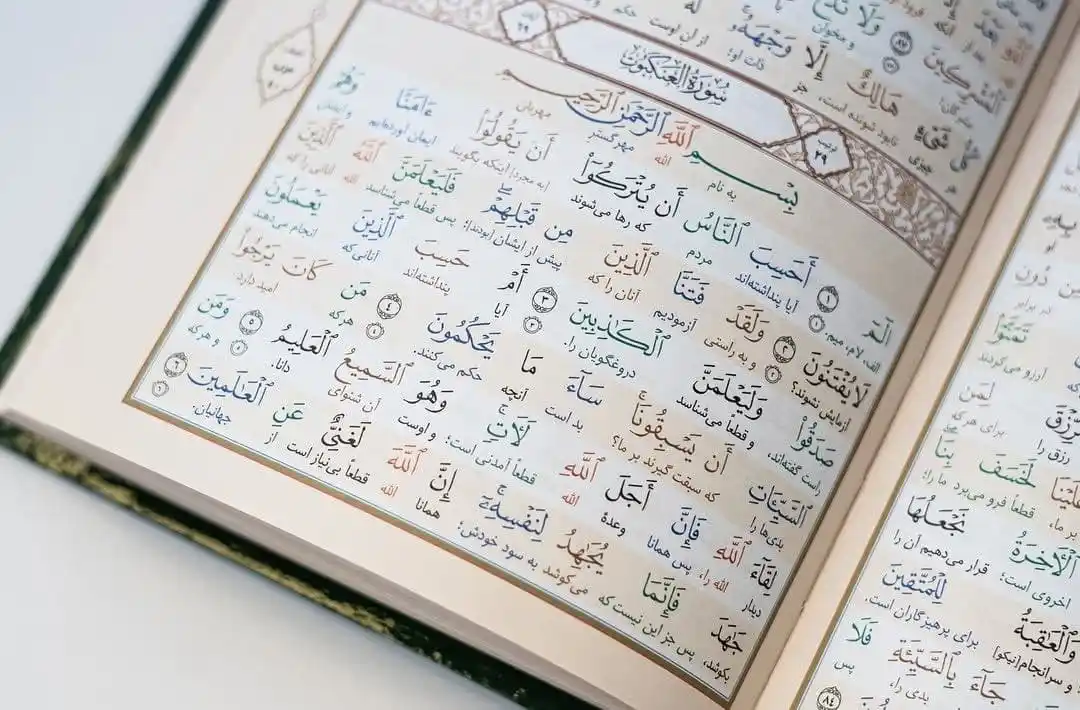 ٱلْمُشْرِكِينَ ٨٧ وَلَا تَدْعُ
مشرکان؛ و مخوان
كُلُّ شَىْءٍ هَالِكٌ إِلَّا وَجْهَهُۥ لَهُ
هر چیزی نابود شونده است، جز ذات او؛ از آن اوست حکم
سُورَةُ ٱلْعَنكَبُوتِ
ترتیب ٢٩
آیات ٦٩
بِسْمِ ٱللَّهِ ٱلرَّحْمَٰنِ ٱلرَّحِيمِ
به نام الله مهرگستر مهربان
الٓمٓ ١ أَحَسِبَ ٱلنَّاسُ أَن يُتْرَكُوٓا۟ أَن يَقُولُوٓا۟ ءَامَنَّا وَهُمْ
الف، لام، میم. ١ آیا پنداشته‌اند مردم که رها می‌شوند [به مجرد] اینکه بگویند ایمان آورده‌ایم و ایشان
لَا يُفْتَنُونَ ٢ وَلَقَدْ فَتَنَّا ٱلَّذِينَ مِن قَبْلِهِمْ فَلَيَعْلَمَنَّ ٱللَّهُ ٱلَّذِينَ
آزمایش نشوند؟ ٢ و به راستی آزمودیم آنان را که پیش از ایشان [بودند]؛ پس قطعاً می‌شناسد الله آنانی را که
صَدَقُوا۟ وَلَيَعْلَمَنَّ ٱلْكَٰذِبِينَ ٣ أَمْ حَسِبَ ٱلَّذِينَ يَعْمَلُونَ
راست گفته‌اند، و قطعاً می‌شناسد دروغگویان را. ٣ آیا پنداشته‌اند آنانی که انجام می‌دهند
ٱلسَّيِّـَٔاتِ أَن يَسْبِقُونَا ۚ سَآءَ مَا يَحْكُمُونَ ٤ مَن كَانَ يَرْجُوا۟
بدی‌ها را که سبقت گیرند بر ما؟ بد است آنچه حکم می‌کنند. ٤ هر که امید دارد
لِقَآءَ ٱللَّهِ فَإِنَّ أَجَلَ ٱللَّهِ لَـَٔاتٍ ۚ وَهُوَ ٱلسَّمِيعُ ٱلْعَلِيمُ ٥ وَمَن
دیدار الله را، پس همانا وعدهٔ الله قطعاً آمدنی است؛ و اوست آن شنوای دانا. ٥ و هر که
جَٰهَدَ فَإِنَّمَا يُجَٰهِدُ لِنَفْسِهِۦٓ ۚ إِنَّ ٱللَّهَ لَغَنِىٌّ عَنِ ٱلْعَٰلَمِينَ ٦
بکوشد، پس جز این نیست که می‌کوشد به سود خودش؛ همانا الله قطعاً بی‌نیاز است از جهانیان. ٦
مِن دُونِ
در برابر
تَمَنَّوْا۟
آرزو می‌کردند
ٱلرِّزْقَ لِمَن
رزق را برای هر که
عَلَيْنَا لَخَسَفَ بِنَا
بر ما، قطعاً فرو می‌برد ما را؛
ٱلْـَٔاخِرَةُ نَجْعَلُهَا
اخروی است؛ قرار می‌دهیم آن را
وَٱلْعَٰقِبَةُ لِلْمُتَّقِينَ
و سرانجام [نیکو] برای پرهیزگاران است.
جَآءَ بِٱلسَّيِّئَةِ فَلَا
بدی را، پس
٨٤